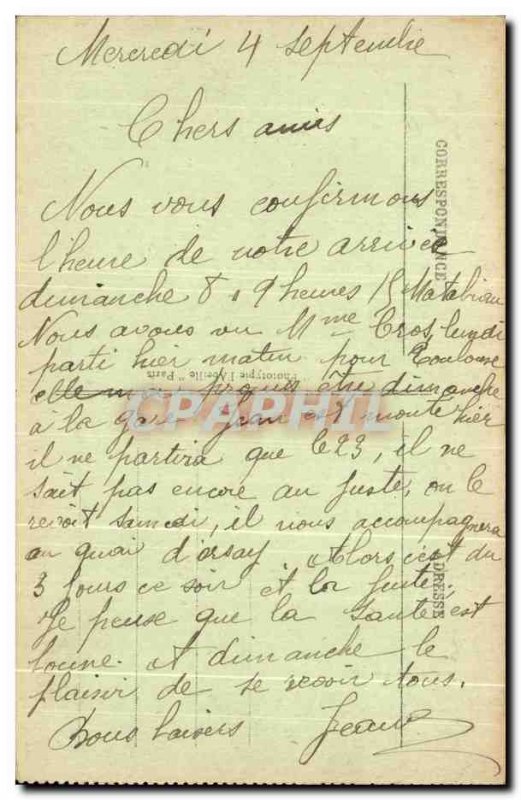 Mercredi 4 septembre
Chers amis
Nous vous confirmons
l'heure de notre arrivée
dimanche 8, 9 heures 15 Matabiau
Nous avons vu Mme Cros, lundi
parti hier matin pour Toulouse
elle m'a promis être dimanche
à la gare. Jean est monté hier
il ne partira que le 23, il ne
sait pas encore au juste, on le
revoit samedi, il nous accompagnera
au quai d'orsay Alors c'est du
3 jours ce soir et la fuite.
Je pense que la santé est
bonne. et dimanche le
plaisir de se revoir tous.
Bons baisers Jeanne
CORRESPONDANCE
ADRESSE
Phototype l'Abeille " Paris
CPAPHIL